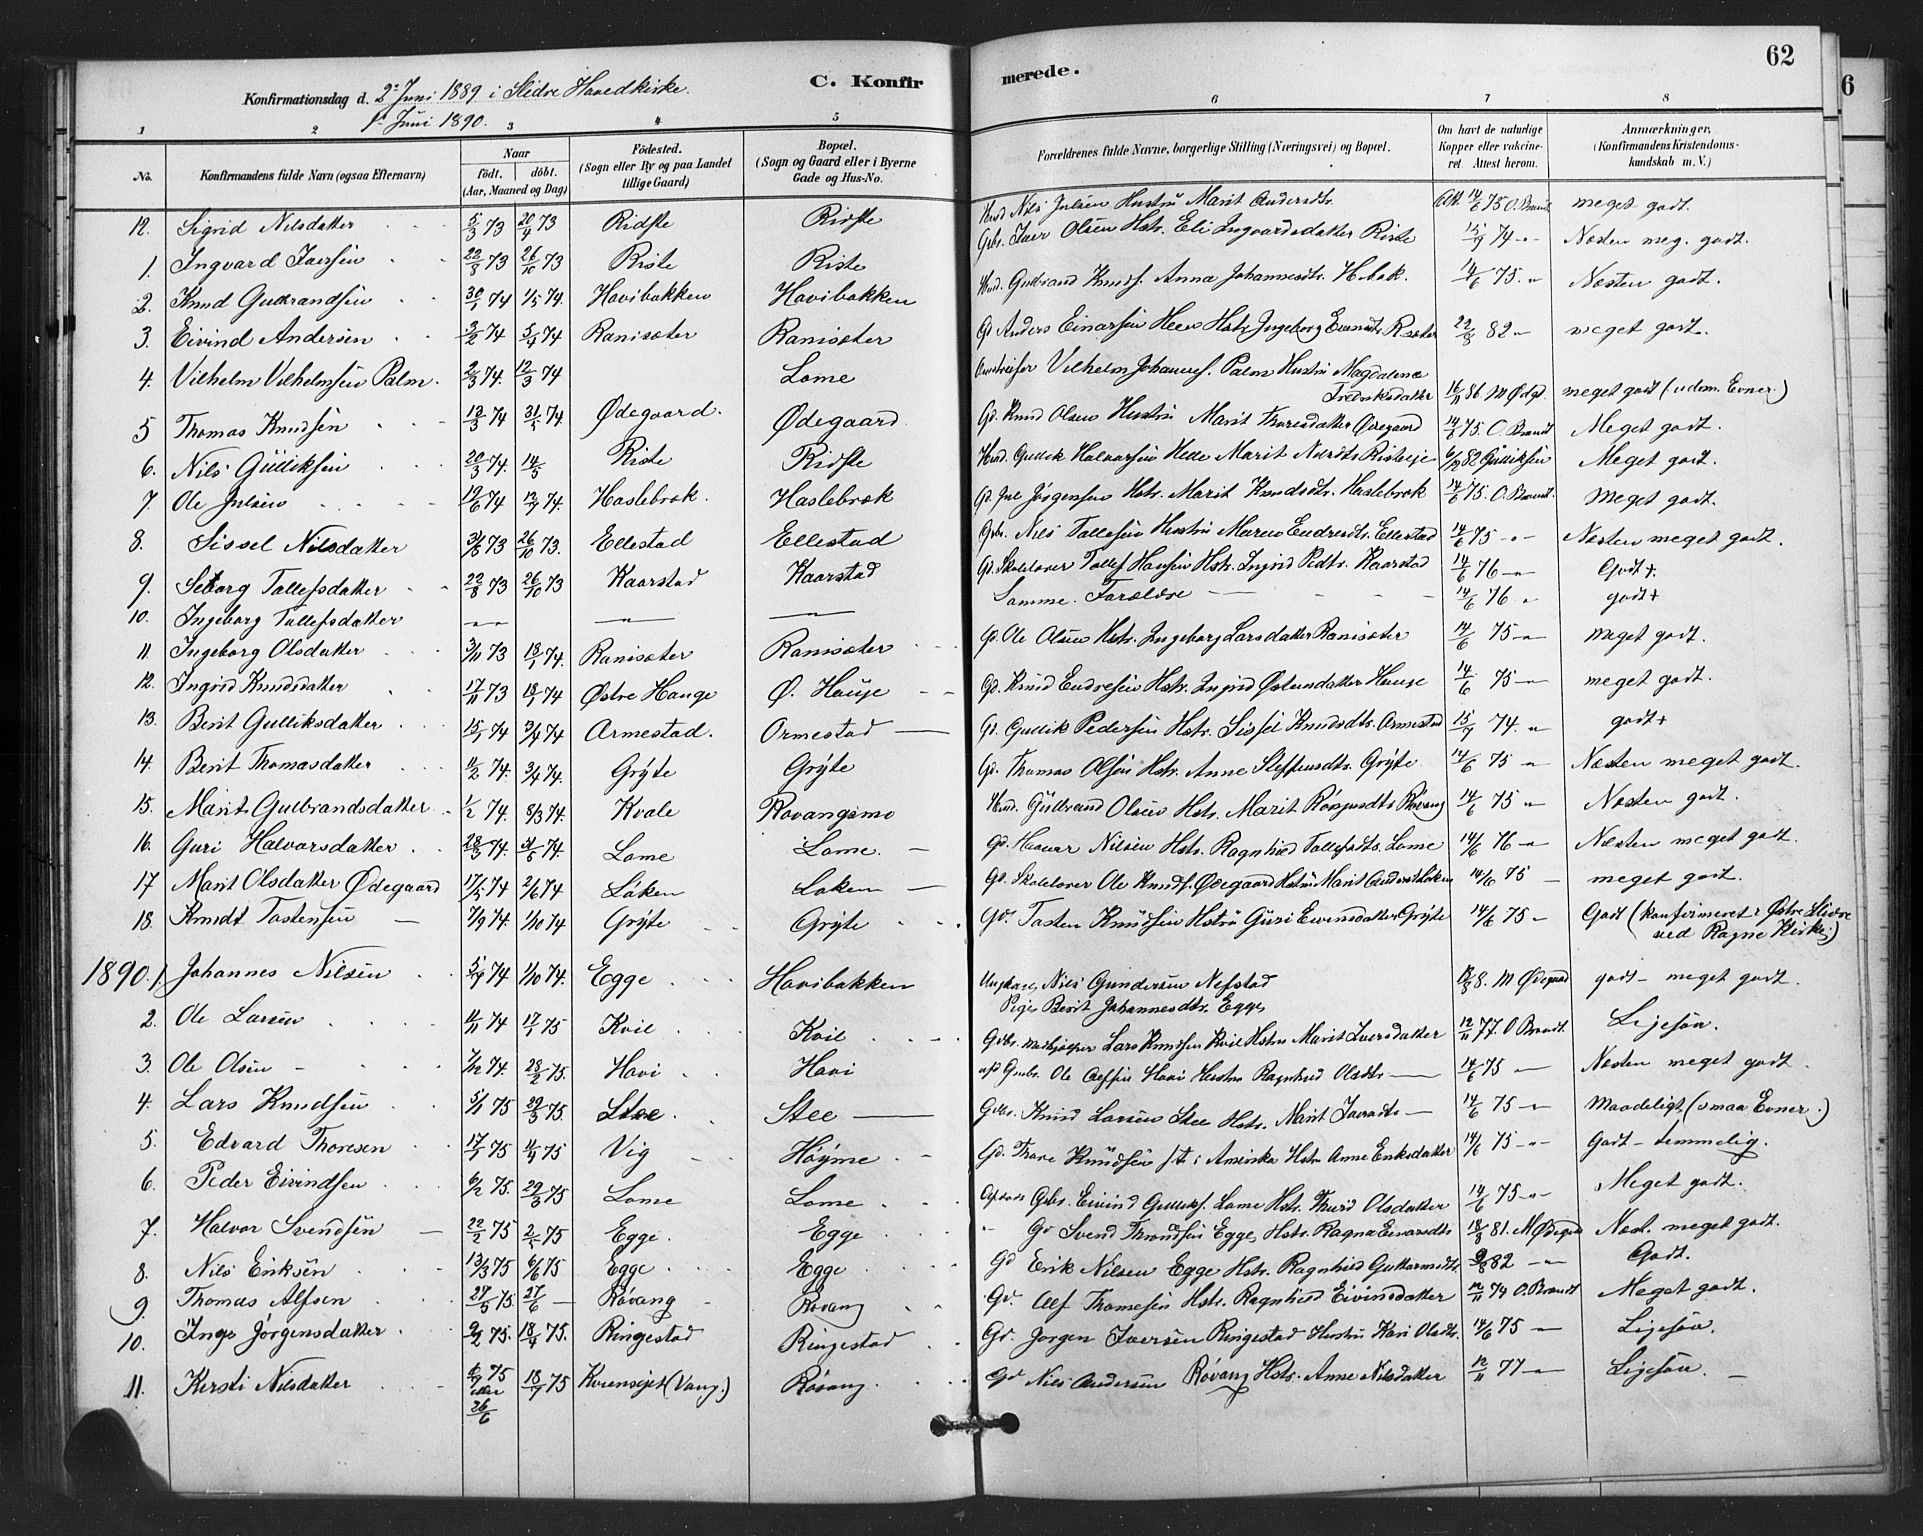 C. Konfirmerede.
62
6
Konfirmationsdag d. 2den Juni 1889 i Slidre Hovedkirke.
1st Juni 1890.
1 2 3 4 5 6 7 8
No. Konfirmandens fulde Navn (ogsaa Efternavn) Naar födt. döbt. (Aar, Maaned og Dag) Födested. (Sogn eller By og paa Landet tillige Gaard) Bopæl. (Sogn og Gaard eller i Byerne Gade og Hus-No. Forældrenes fulde Navne, borgerlige Stilling (Næringsvei) og Bopæl. Om havt de naturlige Kopper eller vakcineret. Attest herom. Anmærkninger. (Konfirmandens Kristendomskundskab m. V.)
12. Sigrid Nilsdatter 5/3 73 20/4 73 Ridste Ridste Nils Julsen Hustru Marit Andersdtr. Att. 14/6 75 O. Brandt meget godt.
1. Ingvard Iversen 22/8 73 26/10 73 Riste Riste Gbr. Iver Olsen Hstr. Eli Ingvardsdatter Riste 15/9 74 -"- Næsten meg. godt.
2. Knud Gulbrandsen 30/1 74 1/5 74. Havibakken Havibakken Hmd. Gulbrand Knuds. Anna Johannesdtr. H.bak. 14/6 75. " Næsten godt.
3. Eivind Andersen 3/2 74 5/4 74 Ranisæter Ranisæter Gd. Anders Einarsen Heen Hstr. Ingeborg R.sæter 22/8 82 " meget godt.
4. Vilhelm Vilhelmsen Palm. 2/3 74. 12/3 74 Lome Vilhelm Johannes. Palm Hustru Magdalena Fredriksdatter 16/11 86 M Ødgd. meget godt (udm. Evner)
5 Thomas Knudsen 13/3 74 31/5 74. Ødegaard. Ødegaard Gd. Knud Olsen Hustru Marit Thoresdatter Ødegaard 14/6 75. O. Brandt Meget godt.
6. Nils Gulliksen 20/3 74. 14/5 Riste Ridste Hmd. Gullik Halvorsen Helle Marit Nilsdtr. Risteeje 82 Gulliksen Meget godt.
7. Ole Julsen 19/6 74 12/7 74. Haslebræk. Haslebræk Gd. Jul Jørgensen Hstr. Marit Knudsdtr. Haslebræk 14/6 75. O. Brandt. Meget godt.
8. Sissel Nilsdatter 31/8 73 26/10 73. Ellestad Ellestad Gbr. Nils Tollefsen Hustru Maren Endresdtr. Ellestad 14/6 75 -"- Næsten meget godt.
9. Seborg Tollefsdatter 22/8 73 26/10 73 Kaarstad Kaarstad Gd. Skolelærer Tollef Hansen Hstr. Ingrid Pedtr. Kaarstad 14/6 76 -"- Godt +.
10. Ingeborg Tollefsdatter -"- -"- -"- Samme Forældre 14/6 76 " godt +
11. Ingeborg Olsdatter 3/11 73 18/1 74. Ranisæter Ranisæter Gd. Ole Olsen Hstr. Ingeborg Larsdatter Ranisæter 14/6 75 -"- meget godt.
12. Ingrid Knudsdatter 17/11 73 18/1 74 Østre Hauge Ø. Hauge Gd. Knud Endresen Hstr. Ingrid Østensdatter Hauge 14/6 75 -"- meget godt.
13. Berit Gulliksdatter 15/1 74 3/4 74 Armestad. Ormestad Gd. Gullik Pedersen Hstr. Sissel Knudsdtr. Ormestad 15/9 74. " godt +
14. Berit Thomasdatter 11/2 74. 3/4 74. Grÿte Grÿte Gd. Thomas Olsen Hstr. Anne Steffensdtr. Grÿte 14/6 75 " Næsten meget godt.
15. Marit Gulbrandsdatter 1/2 74. 8/3 74. Kvale Rovangsmo Hmd. Gulbrand Olsen Hstr. Marit Rovang 14/6 75 " Næsten godt.
16. Guri Halvorsdatter 28/3 74. 31/5 74. Lome Lome. Gd. Nilsen Hstr. Ragnhild Tollefsdtr. Lome 14/6 76 -"- Næsten meget godt.
17 Marit Olsdatter Ødegaard 17/5 74 2/6 74 Löken Løken Gd. Skolelærer Ole Knuds. Ødegaard Hustru Marit Andersdtr. Løken 14/6 75 - meget godt.
18. Knudt Tostensen 7/9 74. 1/10 74 Grÿte Grÿte Gd. Tosten Knudsen Hstru Guri Eivindsdatter Grÿte 14/6 75 " Godt (konfirmeret i Østre Slidre ved Rogne Kirke.)
1890. 1. Johannes Nilsen 5/9 74 1/10 74. Egge Havibakken Ungkarl Nils Gundersen Nefstad Pige Berit Johannesdtr. Egge 8. M Ødegaard godt - meget godt.
2. Ole Larsen 11/11 74 17/1 75 Kvil Kvil Gdbr. Medhjælper Lars Knudsen Kvil Hstru Marit Iversdatter 12/11 77. O Brandt. Ligesaa.
3. Ole Olsen 7/12 74. 28/2 75. Havi Havi Gmbr. Ole Alfsen Havi Hustru Ragnhild Olsdtr. 14/6 75 -"- Næsten meget godt.
4. Lars Knudsen 5/1 75 29/3 75. Stee. Stee Gdbr. Knud Larsen Stee Hstr. Marit Iversdtr. 14/6 75 -"- Maadeligt (smaa Evner.)
5. Edvard Thoresen 17/1 75 11/4 75 Vig Høyme Gd. Thore Knudsen i Amerika Hstr. Anne Eriksdatter 14/6 75 -"- Godt - temmelig.
6. Peder Eivindsen 6/2 75. 29/3 75 Lome Lome Gbr. Eivind Gulliks. Lome Hstr. Thurid Olsdatter 14/6 75 -"- Meget godt.
7. Halvor Svendsen 22/2 75 2/5 75 Egge. Egge " Gd Svend Trondsen Egge, Hstr. Ragna Einarsdtr. 18/8 81. M Ødegaard Næst. meget godt.
8. Nils Eriksen 13/3 75 6/6 75 Egge Egge Gd Erik Nilsen Egge Hstr. Ragnhild Guttormsdtr. 82 -"- Godt.
9. Thomas Alfsen 27/5 75. 27/6 - Røvang Røvang Gd. Alf Thomesen Hstr. Ragnhild Eivindsdatter 12/11 74 O. Brandt Meget godt.
10. Inge Jørgensdatter 2/2 75. 18/4 75. Ringestad Ringestad Gd. Jørgen Iversen Ringestad Hustru Kari Olsdtr. 14/6 75 -"- Ligesaa.
11. Kersti Nilsdatter 75 eller 26/6 18/7 75 (Vang.) Røvang Gd Nils Andersen Røvang Hstr. Anne Nilsdatter 12/11 77 -"- Ligesaa.